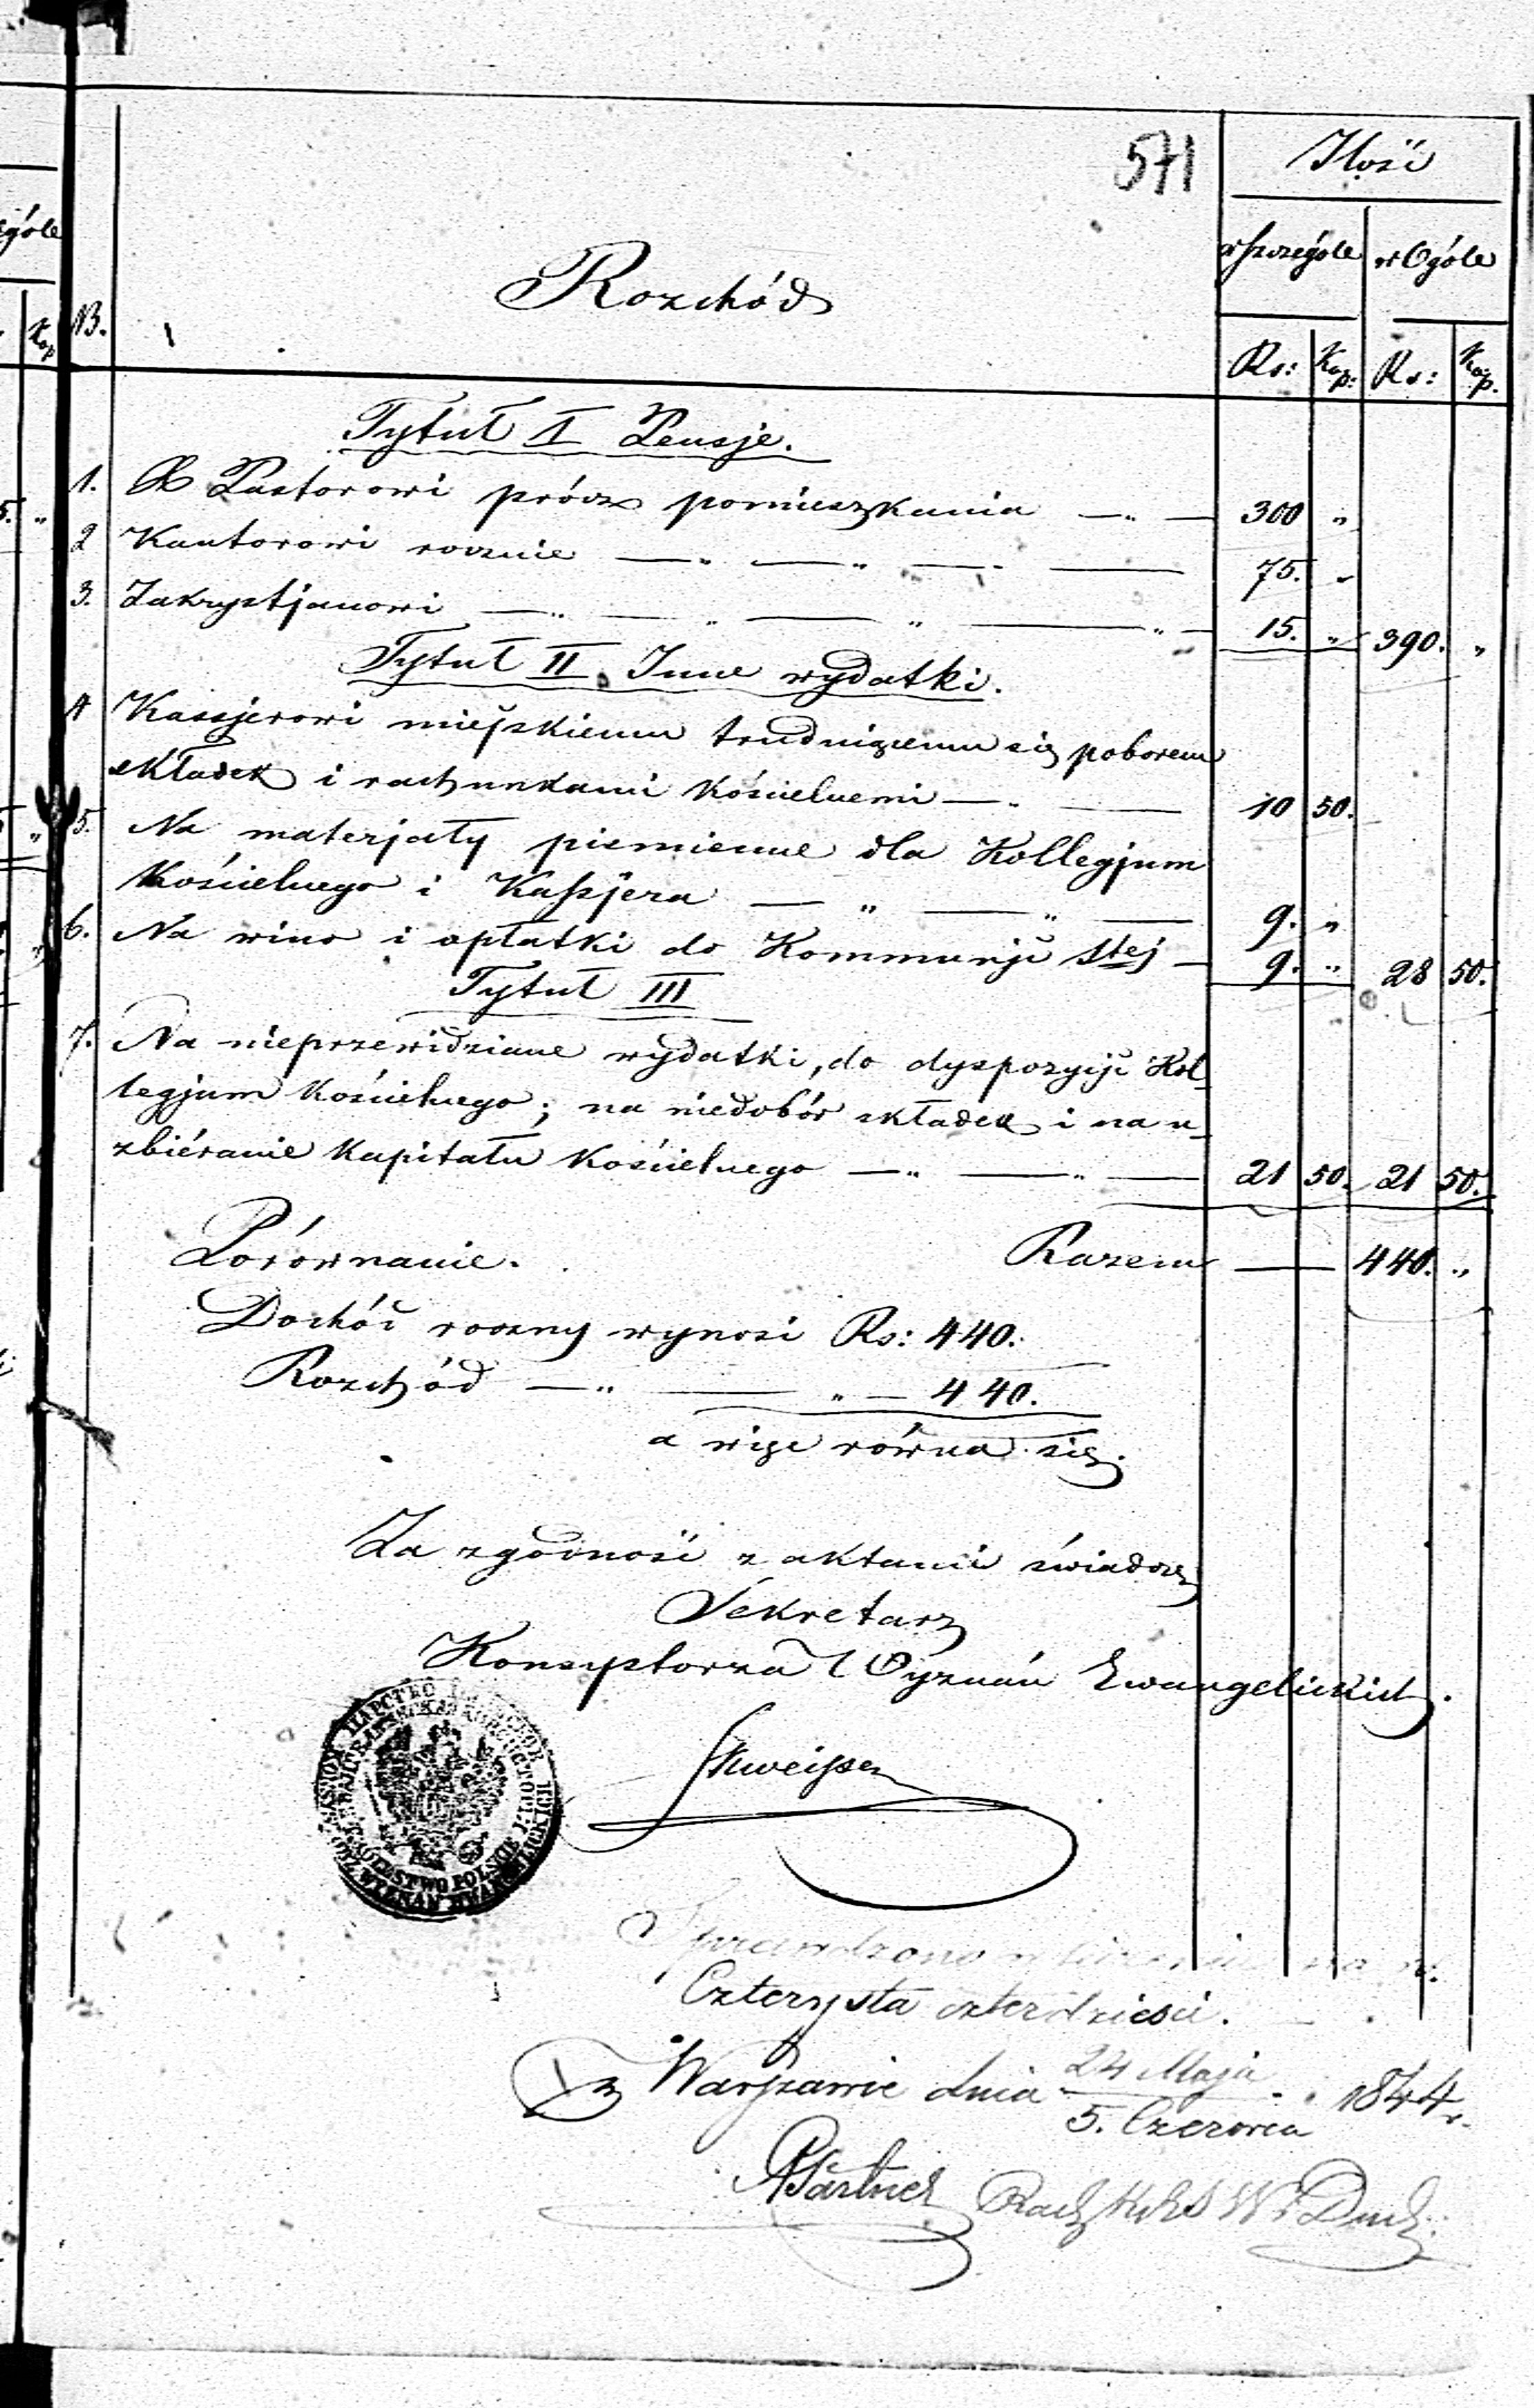 571
Ilość
w Szczególe w Ogóle
góle
Rozchód
N.
Kop
Rs: Kop: Rs: Kop.
Tytuł I Pensje.
1. X Pastorowi prócz pomieszkania — " — 300 "
2 Kantorowi rocznie — " — " — " — 75. "
3. Zakrystjanowi — " — " — " — " — 15. " 390. "
Tytuł II. Inne wydatki.
4 Kassjerowi miejskiemu trudniącemu się poborem
składek i rachunkami kościelnemi — " — 10 50.
5. Na materjały piśmienne dla Kollegjum
Kościelnego i Kassjera — " — " — 9. "
6. Na wino i opłatki do Kommunji Stej — 9. " 28 50.
Tytuł III
7. Na nieprzewidziane wydatki, do dyspozycji Kol-
legjum Kościelnego; na niedobór składek i na u-
zbiéranie Kapitału Kościelnego — " — " — 21 50. 21 50.
Porównanie. Razem — 440. "
Dochód roczny wynosi Rs: 440.
Rozchód — " — " — 440.
a więc równa się.
Za zgodność z aktami świadczę
Sekretarz
Konsystorza Wyznań Ewangelickich.
KONSYSTORZ WYZNAŃ EWANGELICKICH
KRÓLESTWO POLSKIE
Sprawdzono
Czterysta czterdzieści.
w Warszawie dnia 24 Maja 1844 r.
5. Czerwca